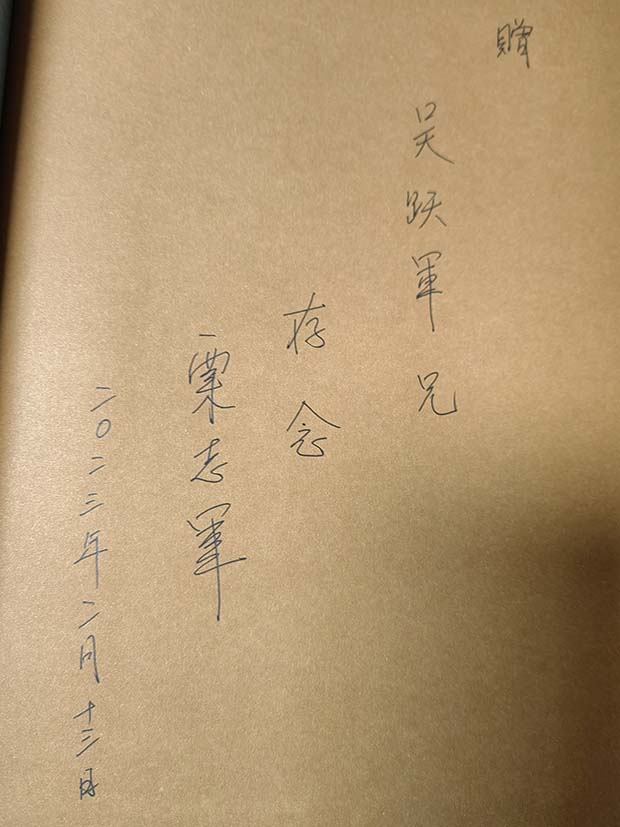 贈
吴跃軍兄
存念
栗志軍
二〇二三年二月十三日